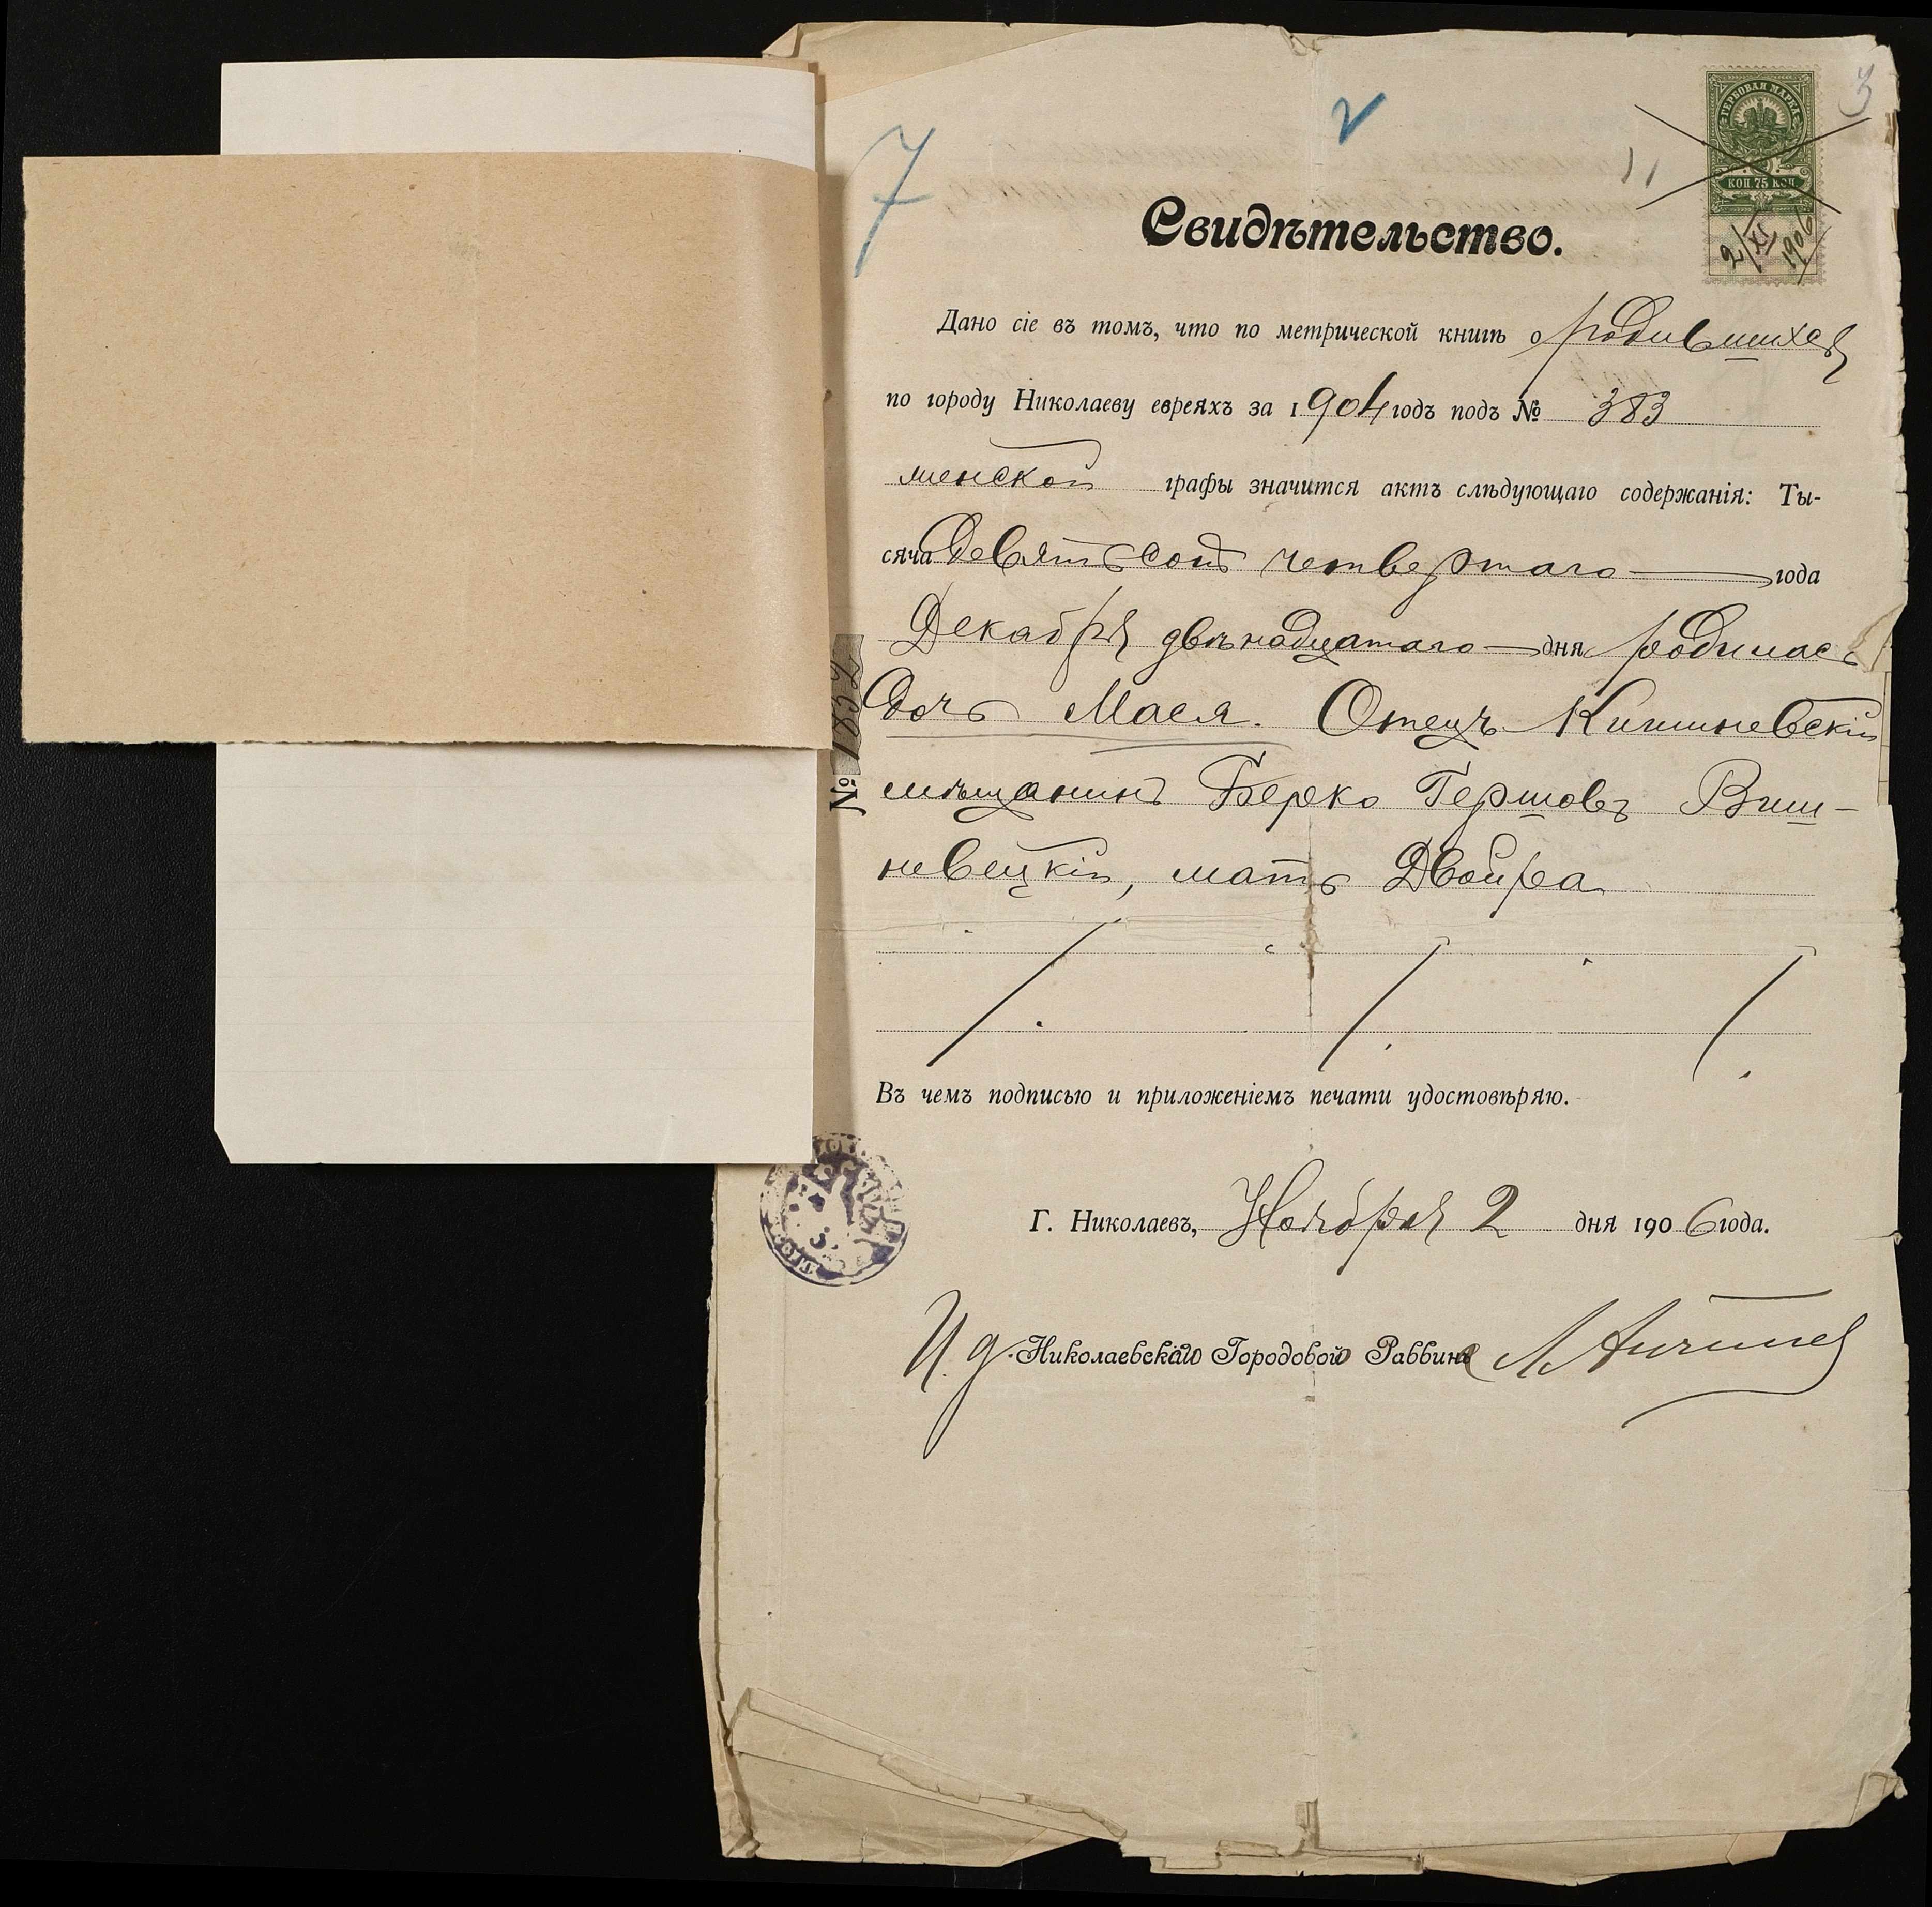 7
2
3
11
ГЕРБОВАЯ МАРКА
КОП. 75 КОП.
2/XI 1906
Свидѣтельство.
Дано сіе въ томъ, что по метрической книгѣ о родившихся
по городу Николаеву евреяхъ за 1904 годъ подъ № 383
женской графы значится актъ слѣдующаго содержанія: Ты-
сяча девятьсотъ четвертаго года
Декабря двѣнадцатаго дня родилась
дочь Мася. Отецъ Кишиневскій
мѣщанинъ Берко Гершовъ Виш-
невецкій, мать Двойра
Въ чемъ подписью и приложеніемъ печати удостовѣряю.
Г. Николаевъ, Ноября 2 дня 1906 года.
И. д. Николаевскаго Городового Раввина
№ 1832